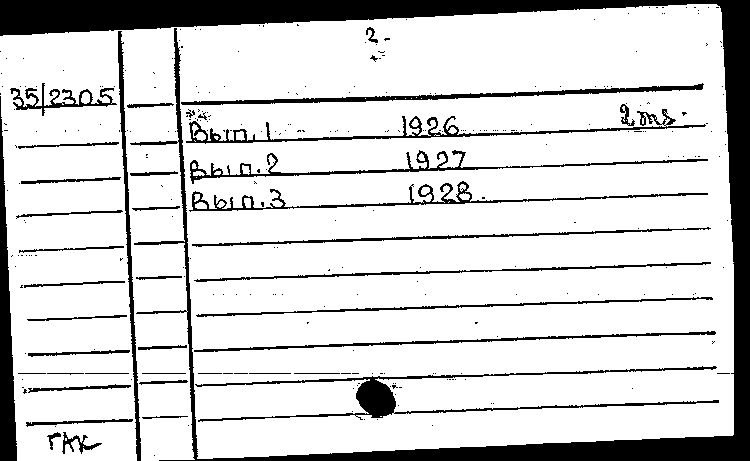 2.
35/2305
Вып. 1 1926
Вып. 2 1927
Вып. 3 1928.
ГАК